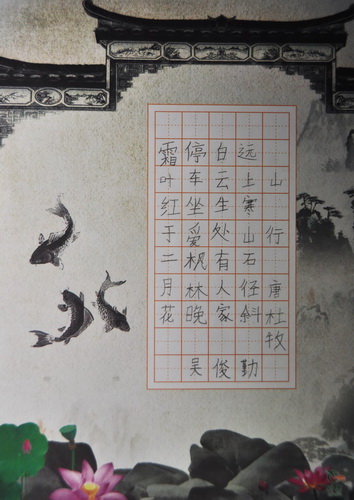 山行 唐杜牧
远上寒山石径斜
白云生处有人家
停车坐爱枫林晚
霜叶红于二月花
吴俊勤